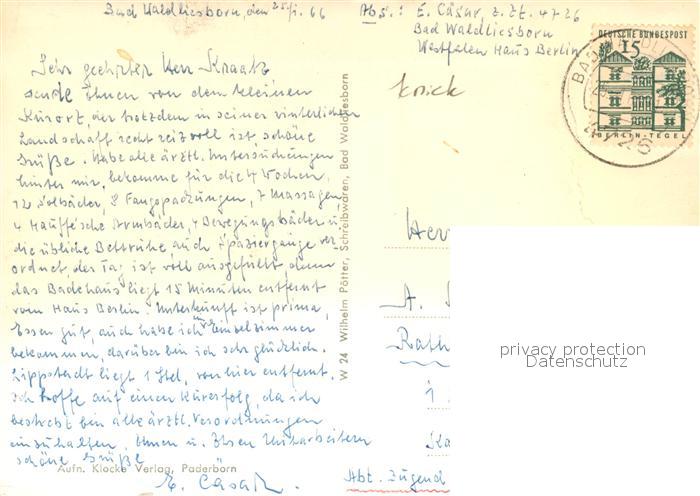 Bad Waldliesborn, den 25/1. 66
Abs.: E. Cäsar, z. Zt. 4726
Bad Waldliesborn
Westfalen Haus Berlin
DEUTSCHE BUNDESPOST
15
BERLIN-TEGEL
BAD WALDLIESBORN
4726
Knick
Sehr geehrter Herr Kraatz
sende Ihnen von dem kleinen
Kurort, der trotzdem in seiner winterlichen
Landschaft recht reizvoll ist, schöne
Grüße. Habe alle ärztl. Untersuchungen
hinter mir, bekomme für die 4 Wochen,
12 Solbäder, 8 Fangopackungen, 7 Massagen,
4 Hauffesche Armbäder, 4 Bewegungsbäder u.
die übliche Bettruhe, auch Spaziergänge ver-
ordnet, der Tag ist voll ausgefüllt, denn
das Badehaus liegt 15 Minuten entfernt
vom Haus Berlin. Unterkunft ist prima,
Essen gut, auch habe ich ein Einzelzimmer
bekommen, darüber bin ich sehr glücklich.
Lippstadt liegt 1 Std. von hier entfernt.
Ich hoffe auf einen Kurerfolg, da ich
bestrebt bin alle ärztl. Verordnungen
einzuhalten. Ihnen u. Ihren Mitarbeitern
schöne Grüße
E. Cäsar
Aufn. Klocke Verlag, Paderborn
W 24 Wilhelm Pötter, Schreibwaren, Bad Waldliesborn
Herr
A.
Rath
1
Abt. Jugend
privacy protection
Datenschutz